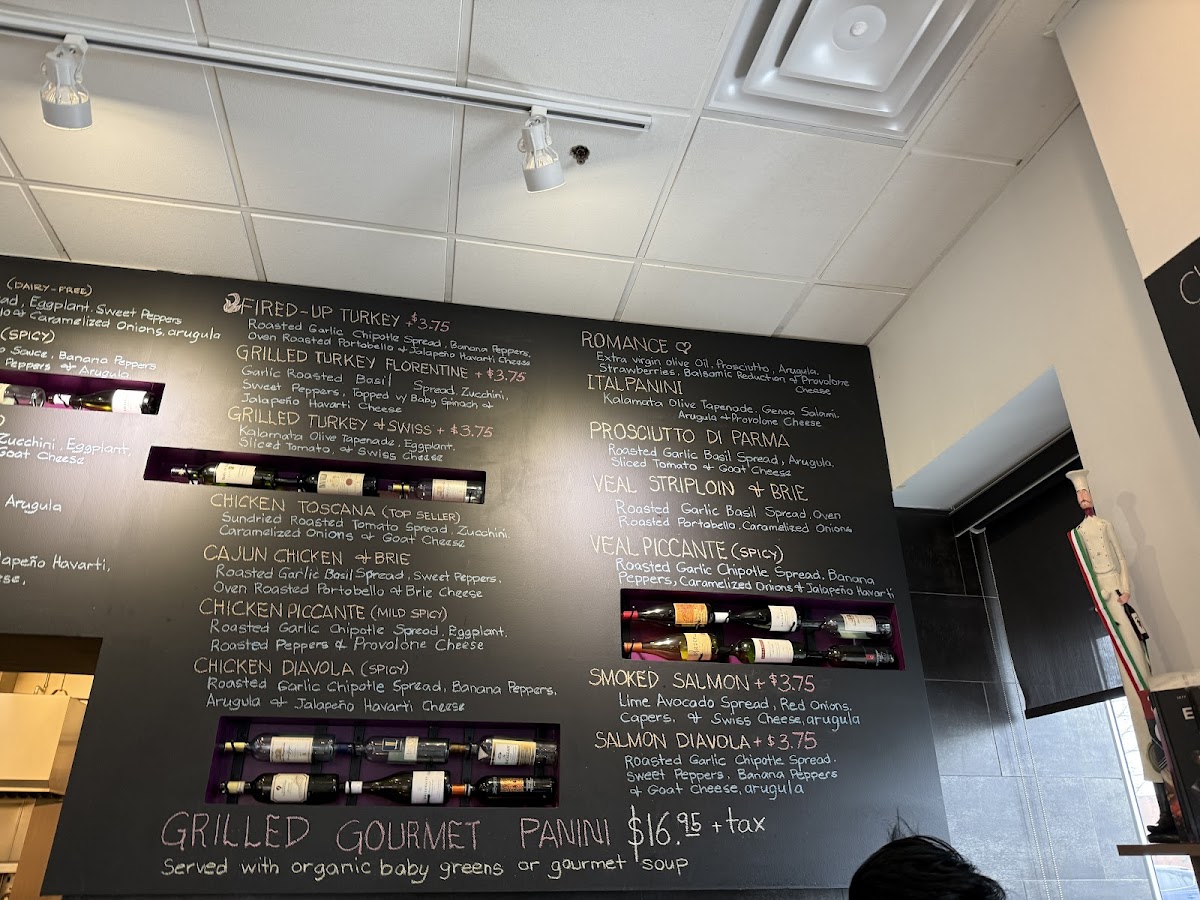 (DAIRY-FREE)
Eggplant, Sweet Peppers
Caramelized Onions, arugula
(SPICY)
Sauce, Banana Peppers
Peppers & Arugula
Zucchini, Eggplant,
Goat Cheese
Arugula
Havarti,
FIRED-UP TURKEY +$3.75
Roasted Garlic Chipotle Spread, Banana Peppers,
Oven Roasted Portobello & Jalapeño Havarti Cheese
GRILLED TURKEY FLORENTINE +$3.75
Garlic Roasted Basil Spread, Zucchini,
Sweet Peppers, Topped w/ Baby Spinach &
Jalapeño Havarti Cheese
GRILLED TURKEY & SWISS + $3.75
Kalamata Olive Tapenade, Eggplant,
Sliced Tomato, & Swiss Cheese
CHICKEN TOSCANA (TOP SELLER)
Sundried Roasted Tomato Spread, Zucchini,
Caramelized Onions & Goat Cheese
CAJUN CHICKEN & BRIE
Roasted Garlic Basil Spread, Sweet Peppers,
Oven Roasted Portobello & Brie Cheese
CHICKEN PICCANTE (MILD SPICY)
Roasted Garlic Chipotle Spread, Eggplant,
Roasted Peppers & Provalone Cheese
CHICKEN DIAVOLA (SPICY)
Roasted Garlic Chipotle Spread, Banana Peppers,
Arugula & Jalapeño Havarti Cheese
ROMANCE
Extra virgin olive Oil, Prosciutto, Arugula,
Strawberries, Balsamic Reduction & Provalone
Cheese
ITALPANINI
Kalamata Olive Tapenade, Genoa Salami,
Arugula & Provalone Cheese
PROSCIUTTO DI PARMA
Roasted Garlic Basil Spread, Arugula,
Sliced Tomato & Goat Cheese
VEAL STRIPLOIN & BRIE
Roasted Garlic Basil Spread, Oven
Roasted Portobello, Caramelized Onions
VEAL PICCANTE (SPICY)
Roasted Garlic Chipotle Spread, Banana
Peppers, Caramelized Onions & Jalapeño Havarti
SMOKED SALMON + $3.75
Lime Avocado Spread, Red Onions,
Capers, & Swiss Cheese, arugula
SALMON DIAVOLA + $3.75
Roasted Garlic Chipotle Spread,
Sweet Peppers, Banana Peppers
& Goat Cheese, arugula
GRILLED GOURMET PANINI $16.95 + tax
Served with organic baby greens or gourmet soup